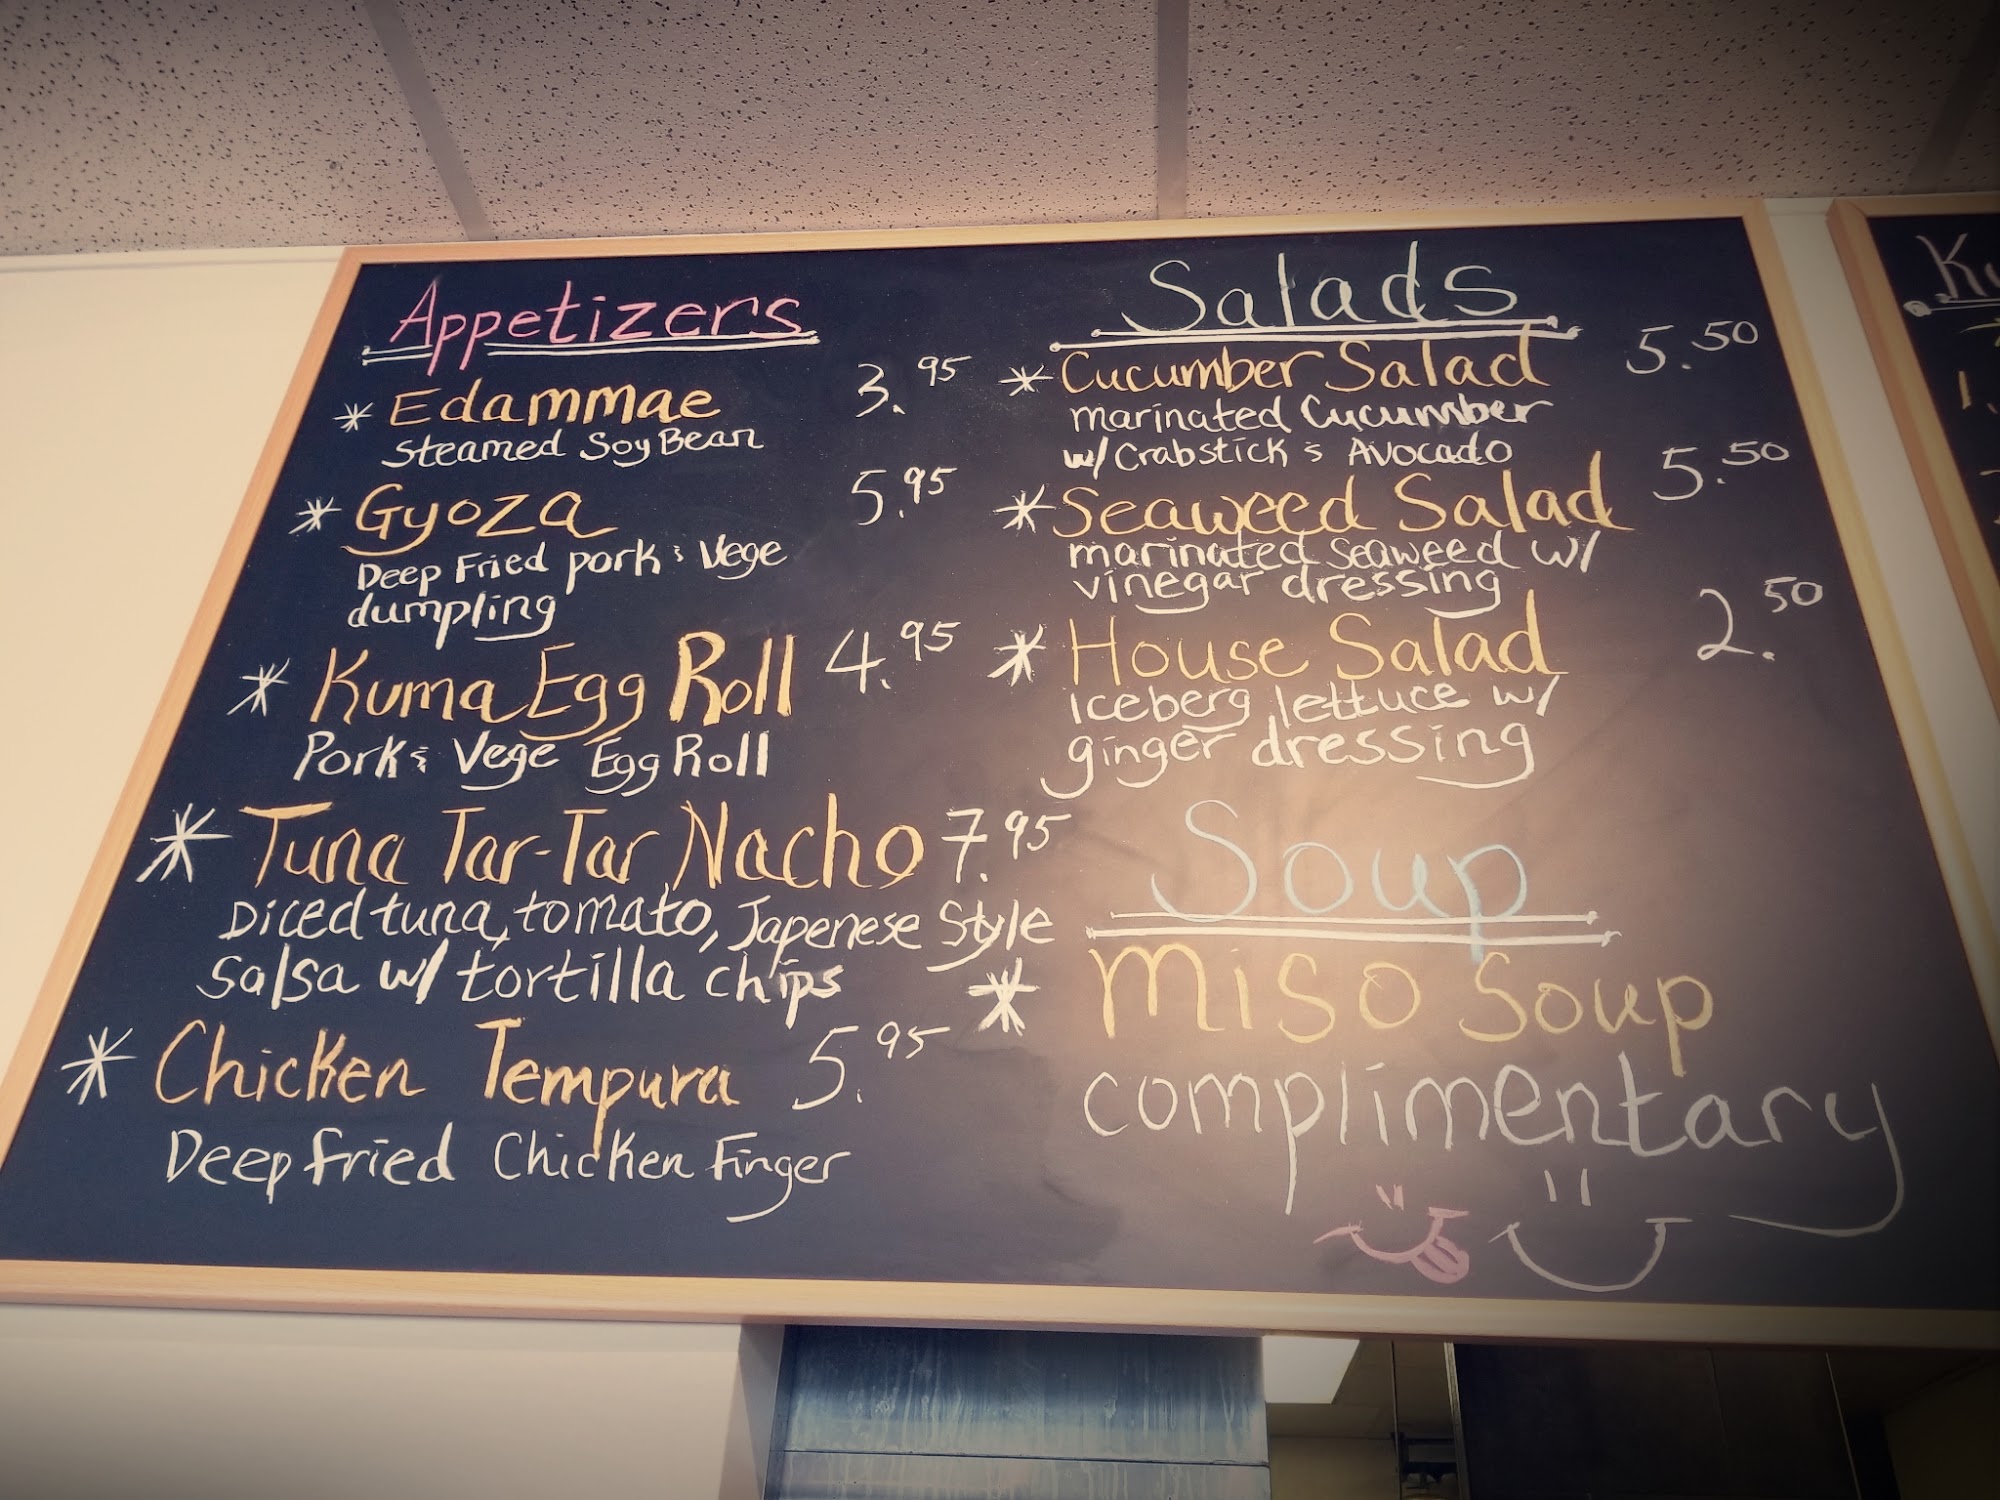 Appetizers
* Edammae 3.95
Steamed Soy Bean
* Gyoza 5.95
Deep Fried pork & Vege
dumpling
* Kuma Egg Roll 4.95
Pork & Vege Egg Roll
* Tuna Tar-Tar Nacho 7.95
Diced tuna, tomato, Japenese Style
Salsa w/ tortilla chips
* Chicken Tempura 5.95
Deep fried Chicken Finger
Salads
* Cucumber Salad 5.50
marinated Cucumber
w/ Crabstick & Avocado
* Seaweed Salad 5.50
marinated seaweed w/
vinegar dressing
* House Salad 2.50
iceberg lettuce w/
ginger dressing
Soup
* Miso Soup
complimentary